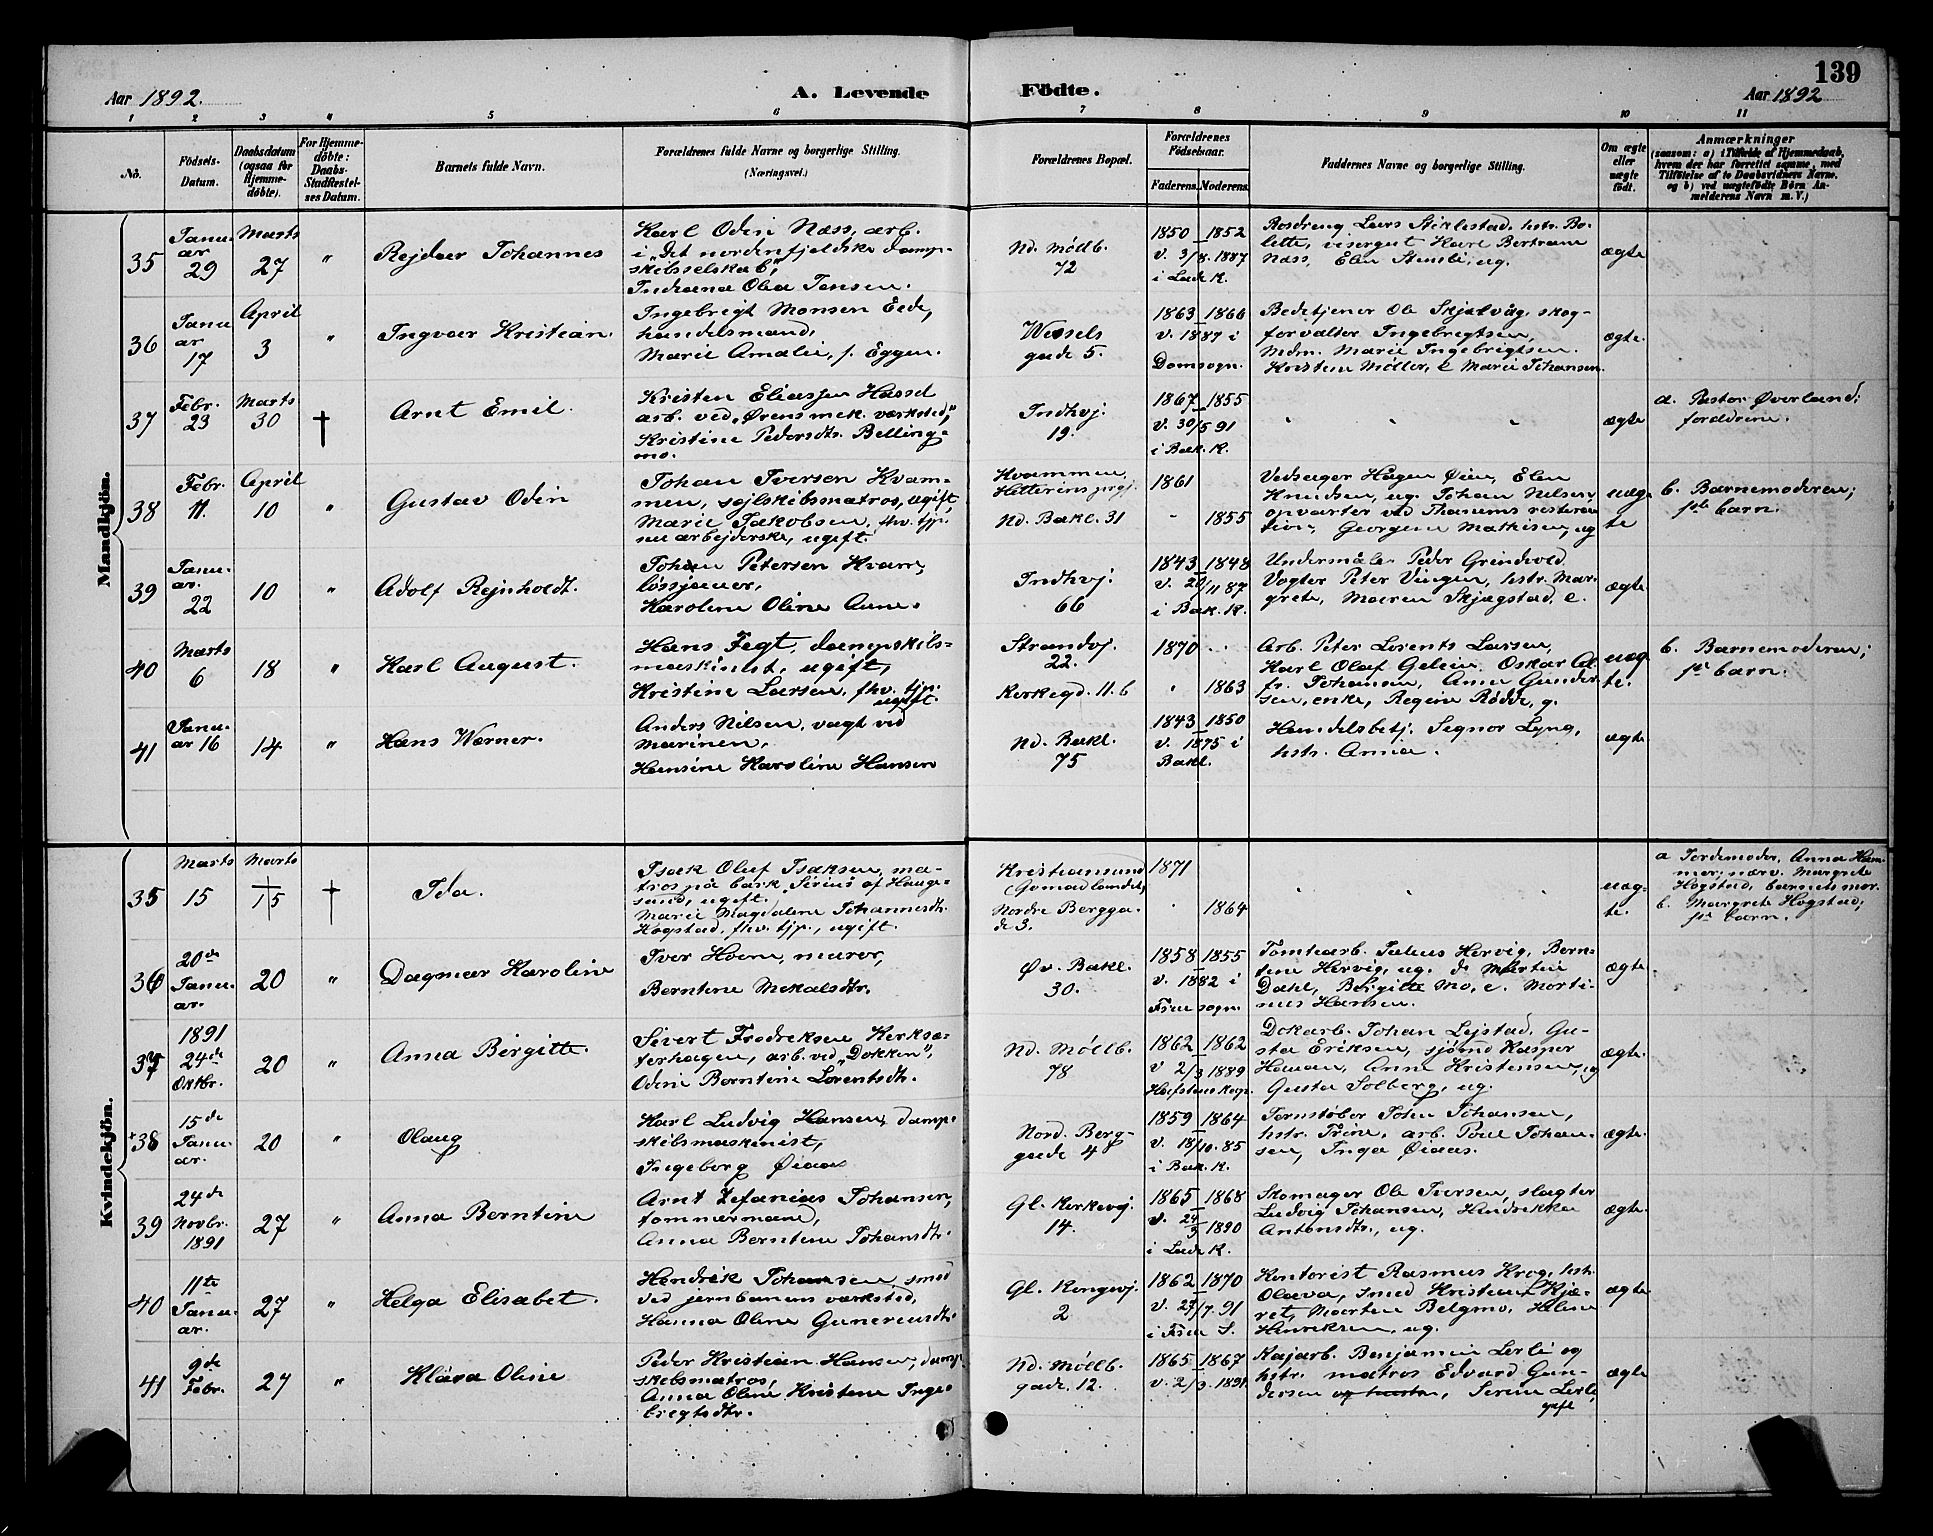 139
Aar 1892.
A. Levende
Fødte.
Aar 1892
1 2 3 4 5 6 7 8 9 10 11
No.
Fødsels-
Datum.
Daabsdatum
(ogsaa for
Hjemme-
døbte).
For Hjemme-
døbte:
Daabs-
Stadfæstel-
ses Datum.
Barnets fulde Navn.
Forældrenes fulde Navne og borgerlige Stilling.
(Næringsvei.)
Forældrenes Bopæl.
Forældrenes
Fødselsaar.
Faderens.
Moderens.
Faddernes Navne og borgerlige Stilling.
Om ægte
eller
uægte
født.
Anmærkninger
(saasom: a) i Tilfælde af Hjemmedaab,
hvem der har forrettet samme, med
Tilføielse af to Daabsvidners Navne,
og b) ved uægtefødte Børn An-
melderens Navn m. V.)
Mandkjøn.
35
Janu-
ar
29
Marts
27
"
Rejdar Johannes
Karl Odin Næss, arb.
i "Det nordenfjeldske damp-
skibsselskab",
Indiana Olea Jensen.
Nd. Møllb.
72
1850 1852
v. 3/8. 1887
i Lade K.
Lars Stiklestad, hstr. Bo-
lette, visergut Karl Bertram
Næss, Elen Stensli, ug.
ægte
36
Janu
ar
17
April
3
"
Ingvar Kristian.
Ingebrigt Monsen Eede,
handelsmand,
Marie Amalie, f. Eggen.
Wessels
gade 5.
1863 1866
v. 1887 i
Domsogn.
Bedetjener Ole Skjelvåg, skog-
forvalter Ingebrigtsen,
Mdm. Marie Ingebrigtsen.
Kristen Møller, & Marie Johansen.
ægte.
37
Febr.
23
Marts
30
†
Arnt Emil.
Kristen Eliassen Hassel
arb. ved "Ørens mek. værksted",
Kristine Pedersdtr. Belling-
mo.
Indhvj.
19.
1867 1855
v. 30/5 91
i Bak. K.
" " "
ægte
a. Pastor Øverland;
forældrene.
38
Febr.
11.
April
10
"
Gustav Odin
Johan Iversen Kvam-
men, sejlskibsmatros, ugift,
Marie Jakobsen, fhv. tjp.
nu arbejderske, ugift.
Kvammen,
Hitterens prgj.
Nd. Bakl. 31
1861
- 1855
Vedsager Hågen Øien, Elen
Knudsen, ug. Johan Nilsen,
opvarter ved Thanems restaura
tion, Georgine Mathisen, ug
uæg-
te
b. Barnemoderen;
barn.
39
Janu-
ar.
22
10
"
Adolf Rejnholdt.
Johan Petersen Kvam,
løssjauer,
Karoline Oline Aune.
Indhvj.
66
1843 1848
v. 20/11 87
i Bak. K.
Undermåler Peder Grindvold
Vagter Peter Vingen, hstr. Mar-
grete, Maren Skjægstad, e.
ægte.
40
Marts
6
18
"
Karl August.
Hans Fegt, dampskibs-
maskinist, ugift,
Kristine Larsen, fhv. tjp.
ugift.
Strandvj.
22.
Kirkegd. 11.b
1870 "
" 1863
Arb. Peter Lorents Larsen,
Karl Olaf Gelein, Oskar Al
fr. Johansen, Anne Gunder
sen, enke, Regine Rødde, g.
uæg-
te.
b. Barnemoderen;
barn.
41
Janu-
ar 16
14
"
Hans Werner.
Anders Nilsen, vagt ved
marinen,
Hansine Karoline Hansen
Nd. Bakl.
75
1843 1850
v. 1875 i
Bakl.
Handelsbetj. Signor Lyng,
hstr. Anna.
ægte.
Kvindekjøn.
35
Marts
15
Marts
15
†
Ida.
Isak Oluf Isaksen, ma-
tros på bark "Sirius" af Hauge-
sund, ugift.
Marie Magdalene Johannesdtr.
Hogstad, fhv. tjp., ugift.
Kristiansund
(Gomalandet)
Nordre Bergga-
de 3.
1871
" 1864
" "
uæg-
te.
a Jordemoder, Anna Ham-
mer; nærv. Margrete
Hogstad, barnets mor.
b. Margrete Hogstad;
barn.
36
20de
Janu-
ar.
20
"
Dagmar Karoline
Iver Hoem, murer,
Berntine Mekalsdtr.
Øv. Bakl.
30.
1858 1855
v. 1882 i
Frue sogn.
Tomtearb. Julius Hervig, Bern-
tine Hervig, ug. & Martin
Dahl, Birgitte Mo, e. Morti-
nus Hansen.
ægte
37
1891
24de
Oktbr.
20
"
Anna Birgitte.
Sivert Fredriksen Kirksæ-
terhagen, arb. ved "Dokken",
Odine Berntine Lorentsdtr.
Nd. Møllb.
78
1862 1862
v 2/3 1889
Dokarb. Johan Lejstad, Gu-
sta Eriksen, sjømd Kasper
Haman, Anne Kristensen, ug
Gusta Solberg, ug.
ægte.
38
15de
Janu-
ar.
20
"
Olaug
Karl Ludvig Hansen, damp-
skibsmaskinist,
Ingeborg Øiaas
Nord. Berg-
gade 4
1859 1864
v. 18/10. 85
i Bak. K.
Jernstøber John Johansen,
hstr. Trine, arb. Poul Johan-
sen, Inga Øiaas.
ægte.
39
24de
Novbr.
1891
27
"
Anna Berntine
Arnt Zefanias Johansen,
tømmermand,
Anna Berntine Johansdtr.
Gl. Kirkevj.
14.
1865 1868
v. 24/3 1890
i Lade K.
Skomager Ole Iversen, slagter
Ludvig Johansen, Hendrikke
Antonsdtr., ug.
ægte.
40
11te
Janu-
ar.
27
"
Helga Elisabet.
Hendrik Johansen, smed
ved jernbanens værksted,
Hanna Oline Guneriusdtr.
Gl. Kongevj.
2
1862 1870
v. 27/7. 91
i Frue S.
Kontorist Rasmus Krog, hstr.
Olava, smed Kristian Kjæ-
ret, Marten Belgmo, Heline
Henriksen, ug.
ægte
41
9de
Febr.
27
"
Klara Oline
Peder Kristian Hansen, damp
skibsmatros,
Anna Oline Kristine Inge-
brigtsdtr.
Nd. Møllb.
gade. 12.
1865. 1867
v. 2/3. 1891
Kajarb. Benjamin Lerli og
hstr. matros Edvard Gun-
dersen, Serine Lerli,
ugift
ægte